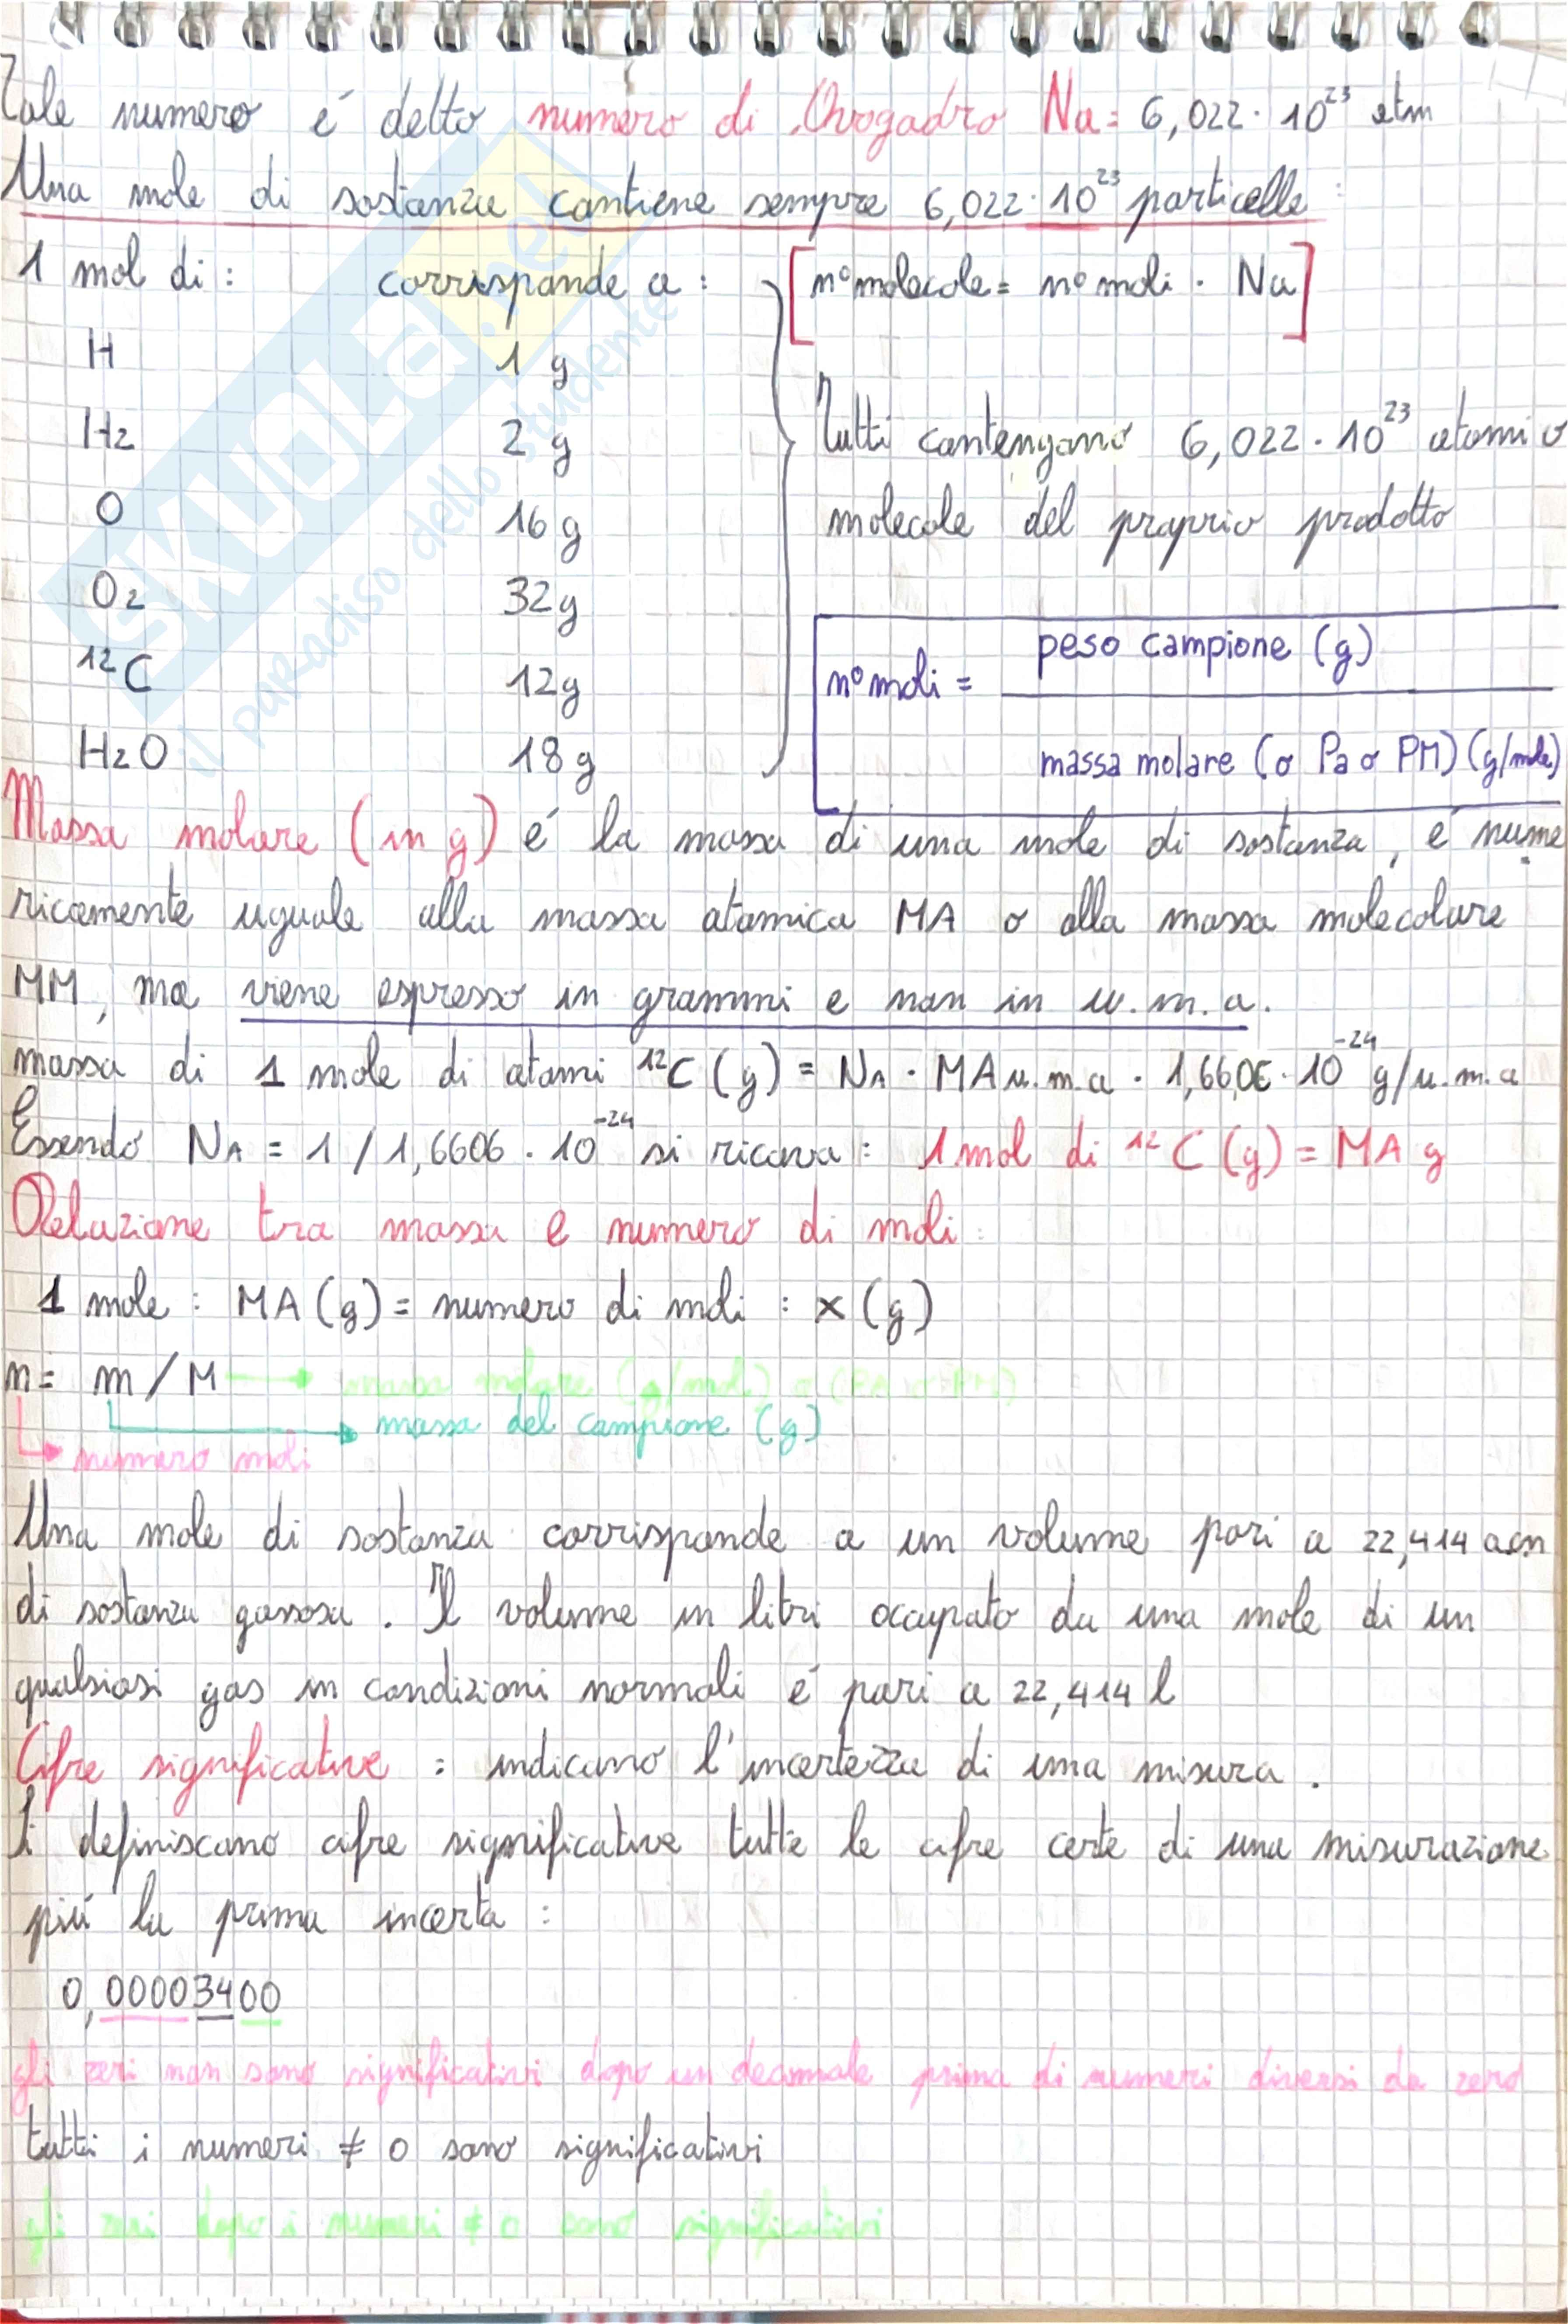 Tale numero é detto numero di Avogadro Na= 6,022 · 10²³ atm
Una mole di sostanza contiene sempre 6,022 · 10²³ particelle :
1 mol di : corrisponde a : [n° molecole = n° moli · Na]
H 1 g
H2 2 g Tutti contengono 6,022 · 10²³ atomi o
O 16 g molecole del proprio prodotto
O2 32 g
¹²C 12 g n° moli = peso campione (g)
H2O 18 g massa molare (o Pa o PM) (g/mole)
Massa molare (in g) é la massa di una mole di sostanza, é nume
ricamente uguale alla massa atomica MA o alla massa molecolare
MM, ma viene espresso in grammi e non in u.m.a.
massa di 1 mole di atomi ¹²C (g) = NA · MA u.m.a · 1,6606 · 10⁻²⁴ g/u.m.a
Essendo NA = 1 / 1,6606 · 10⁻²⁴ si ricava : 1 mol di ¹²C (g) = MA g
Relazione tra massa e numero di moli :
1 mole : MA (g) = numero di moli : x (g)
n = m / M massa molare (g/mol) o (PA o PM)
massa del campione (g)
numero moli
Una mole di sostanza corrisponde a un volume pari a 22,414 a cn
di sostanza gassosa . Il volume in litri occupato da una mole di un
qualsiasi gas in condizioni normali é pari a 22,414 l
Cifre significative : indicano l'incertezza di una misura .
Si definiscono cifre significative tutte le cifre certe di una misurazione
piú la prima incerta :
0,00003400
gli zeri non sono significativi dopo un decimale prima di numeri diversi da zero
tutti i numeri ≠ 0 sono significativi
gli zeri dopo i numeri ≠ 0 sono significativi
SKUOLA.net
il paradiso dello studente